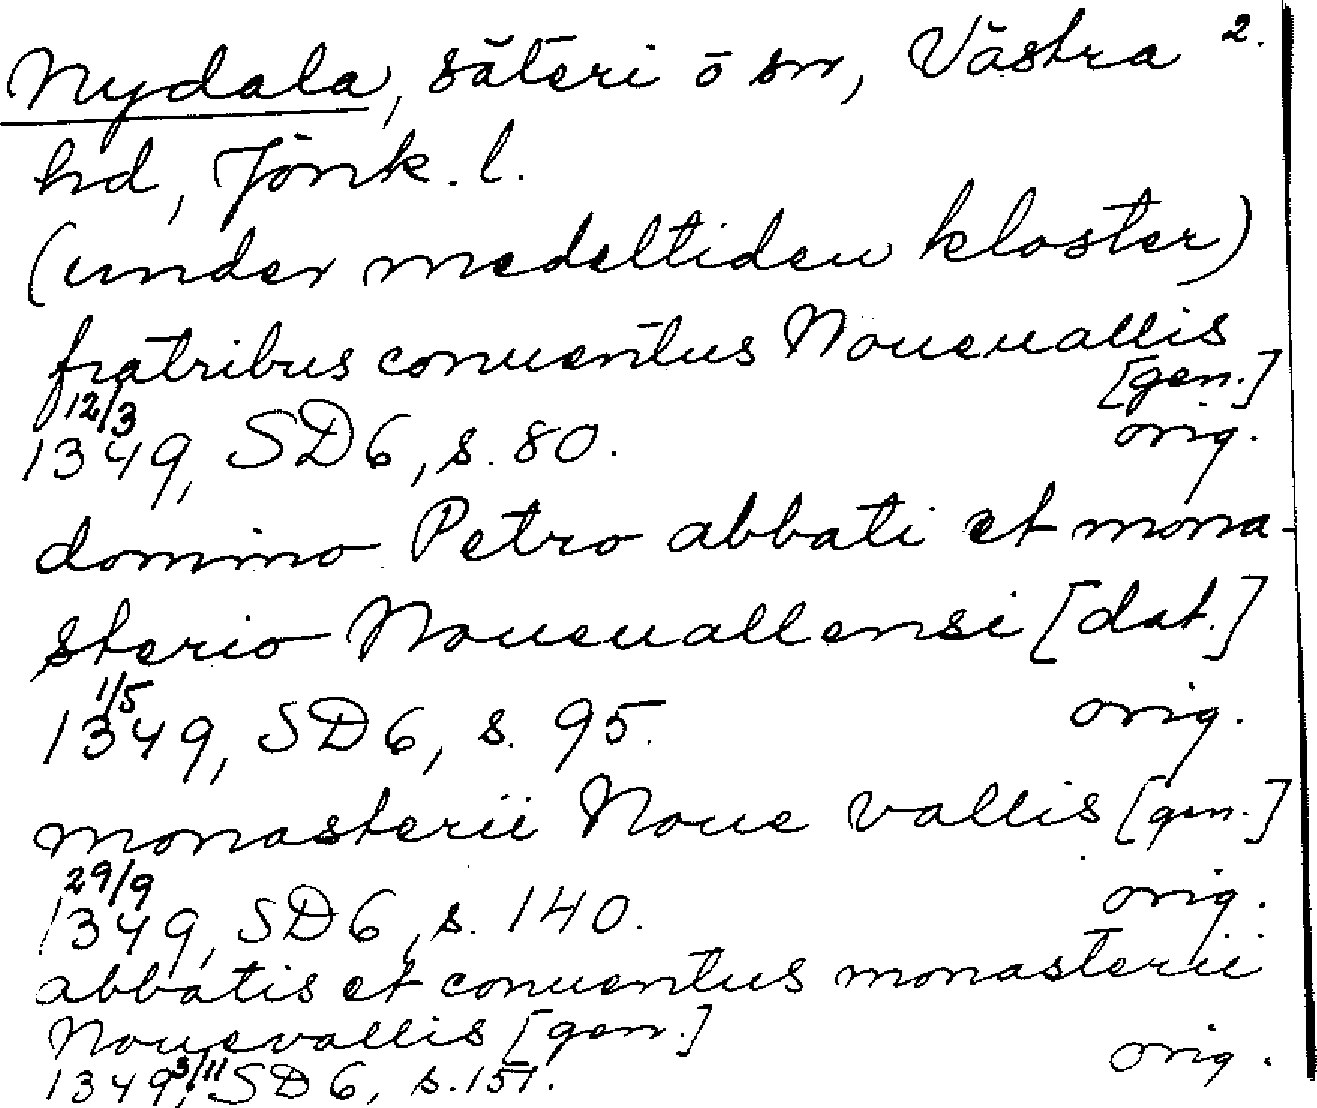 Nydala, säteri o sn, Västra 2.
hd, Jönk. l.
(under medeltiden kloster)
fratribus conuentus Noueuallis
[gen.]
12/3
1349, SD 6, s. 80. orig.
domino Petro abbati et mona-
sterio Noueuallensi [dat.]
1/5
1349, SD 6, s. 95. orig.
monasterii Noue vallis [gen.]
29/9
1349, SD 6, s. 140. orig.
abbatis et conuentus monasterii
Nouevallis [gen.]
1349 3/11, SD 6, s. 151. orig.